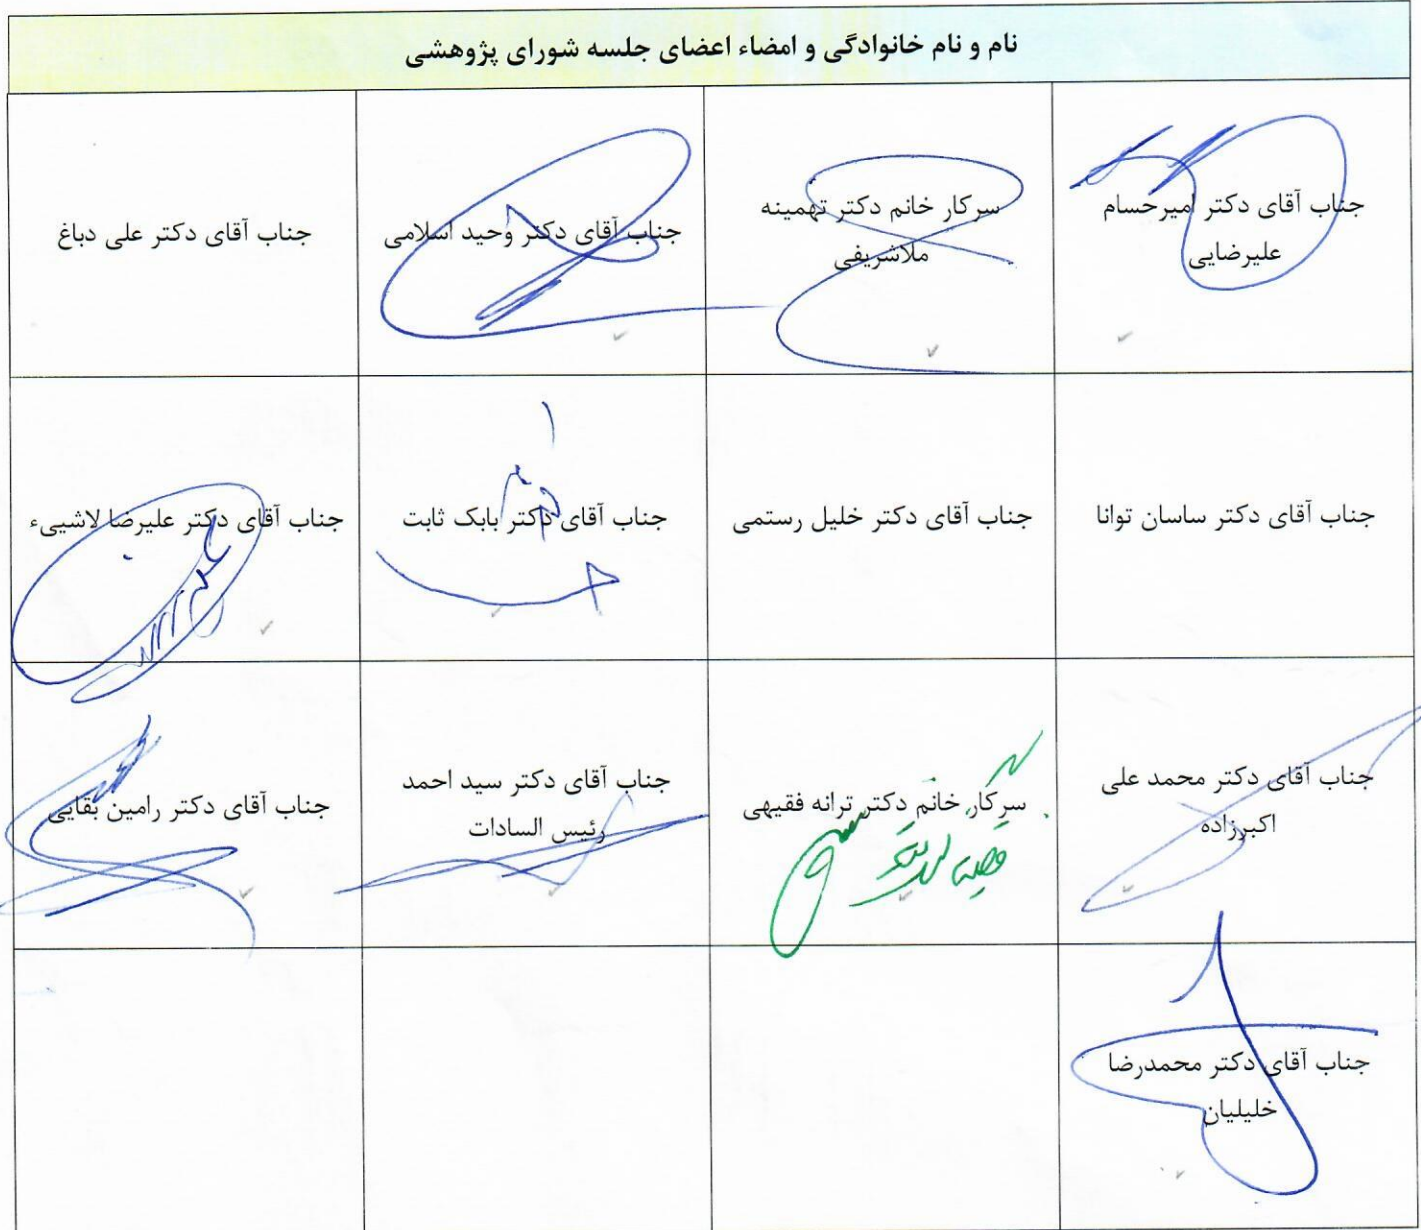 نام و نام خانوادگی و امضاء اعضای جلسه شورای پژوهشی
جناب آقای دکتر امیرحسام
علیرضایی
سرکار خانم دکتر تهمینه
ملاشریفی
جناب آقای دکتر وحید اسلامی
جناب آقای دکتر علی دباغ
جناب آقای دکتر ساسان توانا
جناب آقای دکتر خلیل رستمی
جناب آقای دکتر بابک ثابت
جناب آقای دکتر علیرضا لاشییء
جناب آقای دکتر محمد علی
اکبرزاده
سرکار خانم دکتر ترانه فقیهی
جناب آقای دکتر سید احمد
رئیس السادات
جناب آقای دکتر رامین بقایی
جناب آقای دکتر محمدرضا
خلیلیان